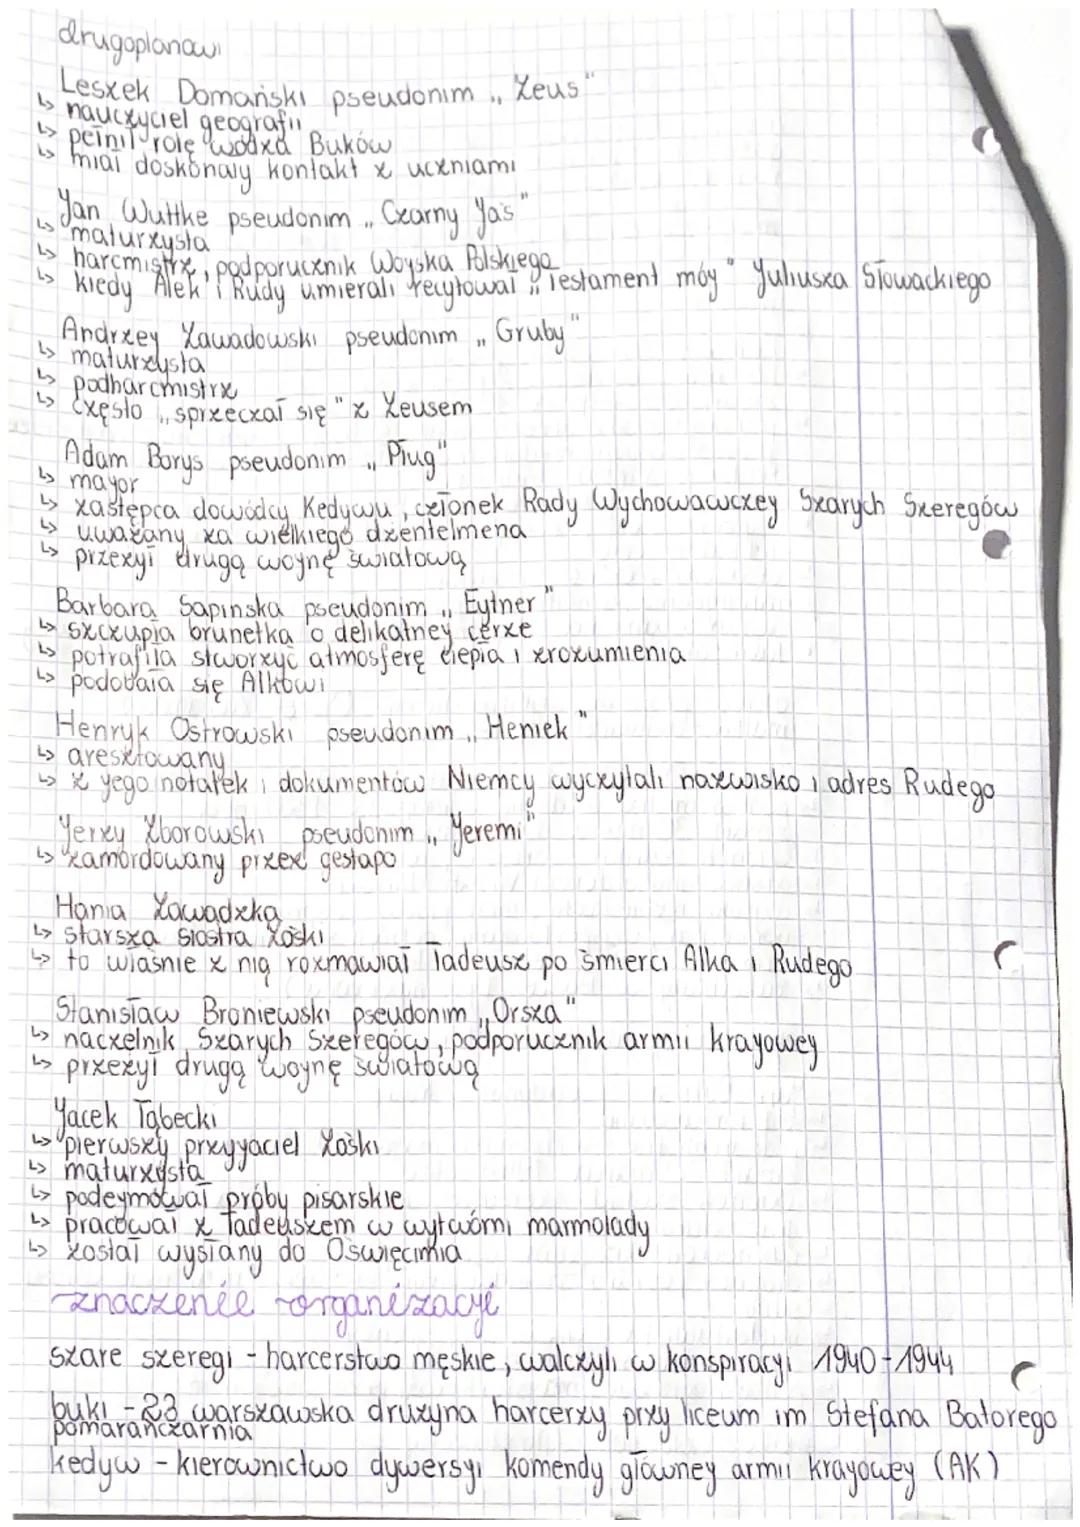 drugoplanowi
Leszek Domański pseudonim „Zeus"
↳ nauczyciel geografii
↳ pełnił rolę wodza Buków
↳ miał doskonały kontakt z uczniami
Jan Wuttke pseudonim „Czarny Jaś"
↳ maturzysta
↳ harcmistrz, podporucznik Wojska Polskiego
↳ kiedy Alek i Rudy umierali recytował „Testament mój" Juliusza Słowackiego
Andrzej Zawadowski pseudonim „Gruby"
↳ maturzysta
↳ podharcmistrz
↳ często „sprzeczał się" z Zeusem
Adam Borys pseudonim „Pług"
↳ major
↳ zastępca dowódcy Kedywu, członek Rady Wychowawczej Szarych Szeregów
↳ uważany za wielkiego dżentelmena
↳ przeżył drugą wojnę światową
Barbara Sapińska pseudonim „Eytner"
↳ szczupła brunetka o delikatnej cerze
↳ potrafiła stworzyć atmosferę ciepła i zrozumienia
↳ podobała się Alkowi
Henryk Ostrowski pseudonim „Heniek"
↳ aresztowany
↳ z jego notatek i dokumentów Niemcy wyczytali nazwisko i adres Rudego
Jerzy Zborowski pseudonim „Jeremi"
↳ zamordowany przez gestapo
Hania Zawadzka
↳ starsza siostra Zośki
↳ to właśnie z nią rozmawiał Tadeusz po śmierci Alka i Rudego
Stanisław Broniewski pseudonim „Orsza"
↳ naczelnik Szarych Szeregów, podporucznik armii krajowej
↳ przeżył drugą wojnę światową
Jacek Tąbecki
↳ pierwszy przyjaciel Zośki
↳ maturzysta
↳ podejmował próby pisarskie
↳ pracował z Tadeuszem w wytwórni marmolady
↳ został wysłany do Oświęcimia
znaczenie organizacji
szare szeregi - harcerstwo męskie, walczyli w konspiracji 1940-1944
buki - 23 warszawska drużyna harcerzy przy liceum im Stefana Batorego
pomarańczarnia
kedyw - kierownictwo dywersji komendy głównej armii krajowej (AK)